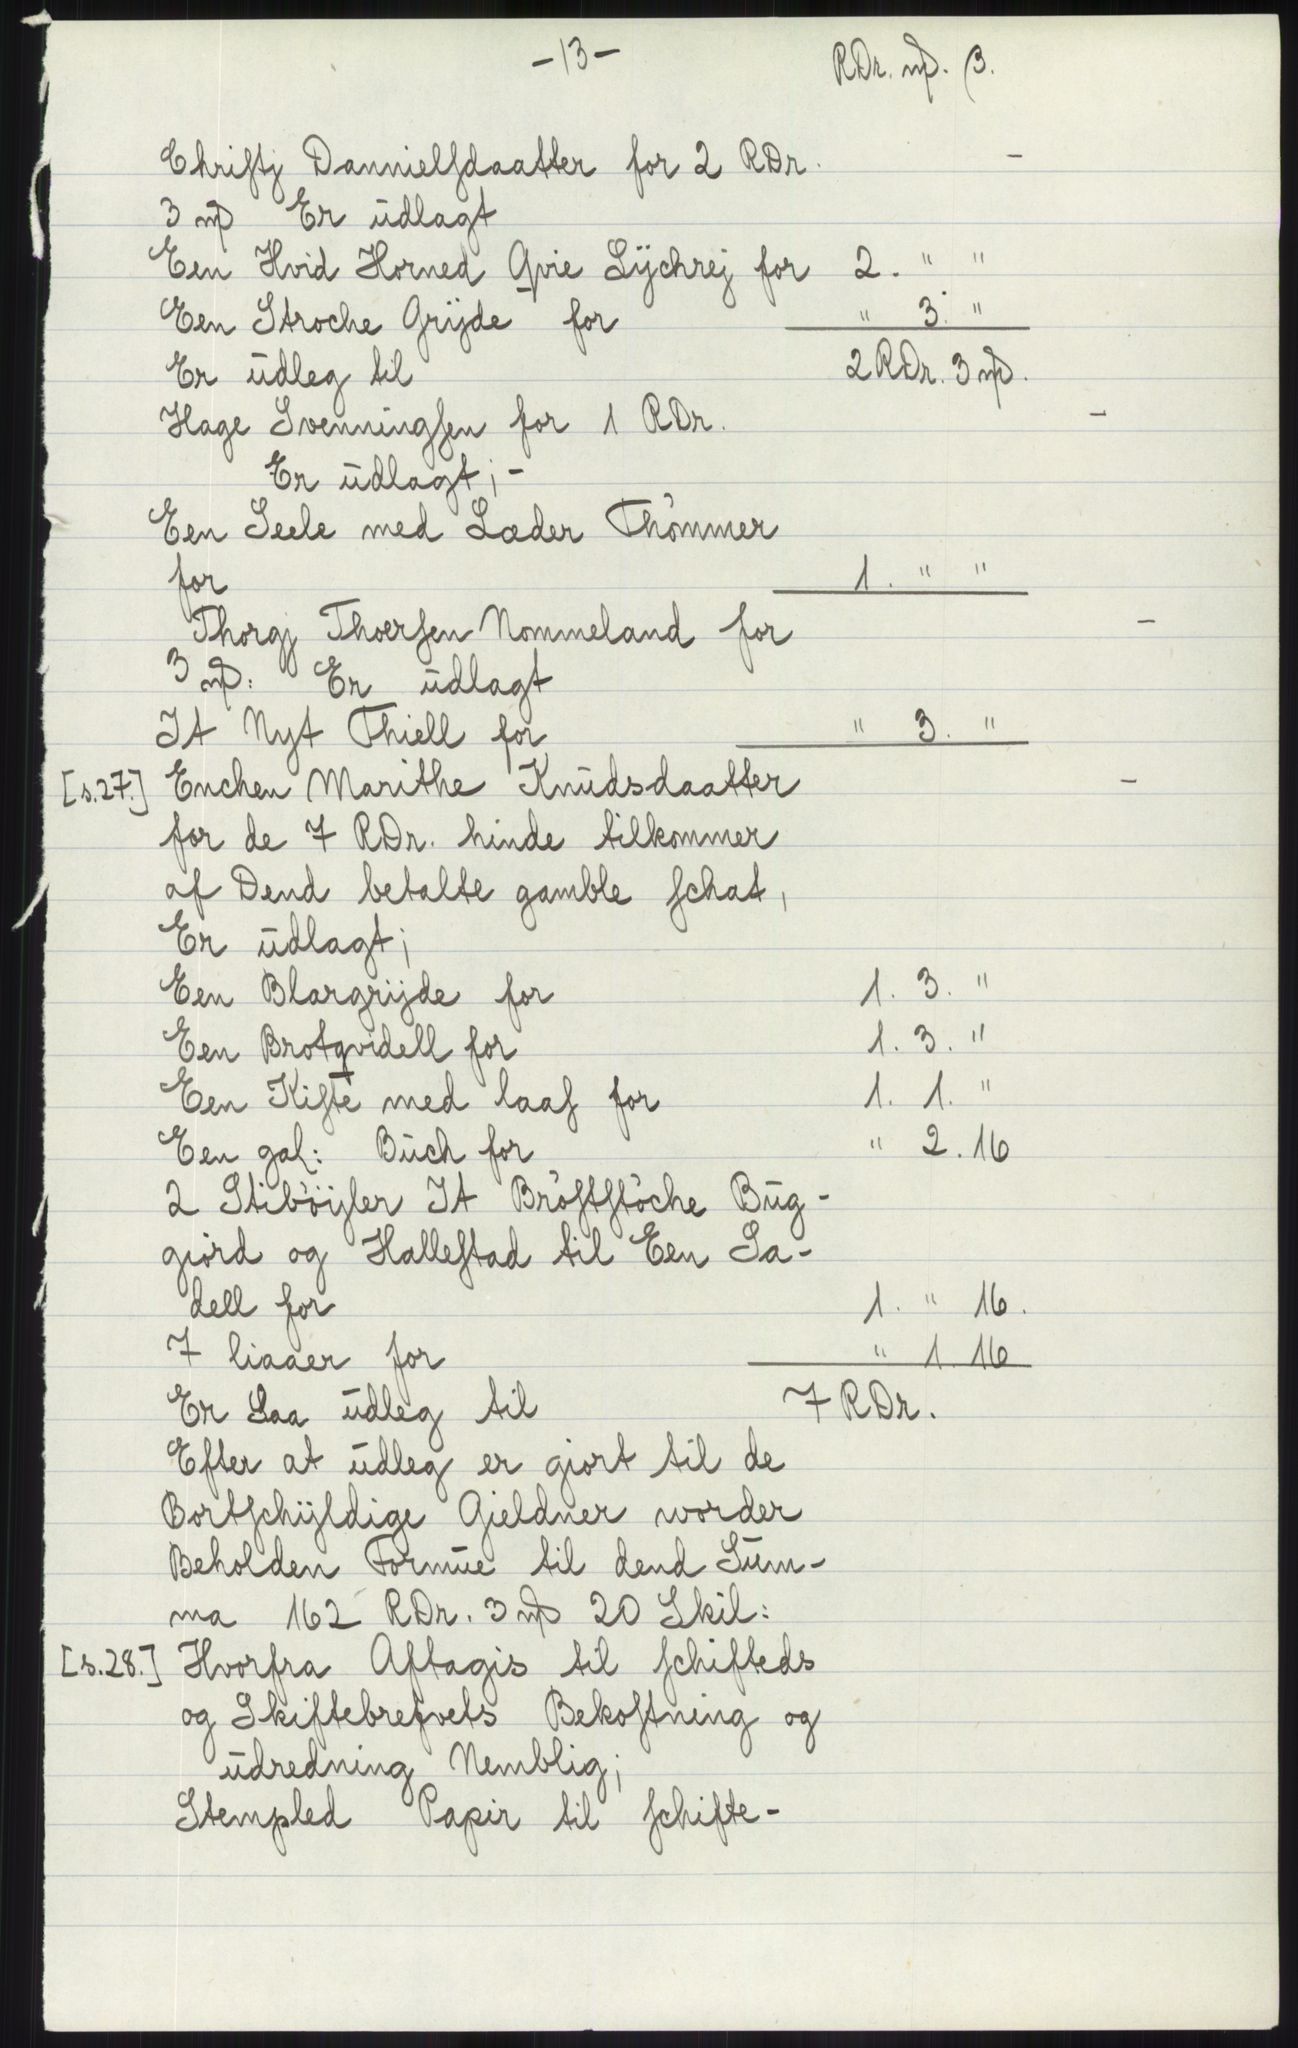 -13-
RDr. mꝭ. β.
Christj Dannielsdaatter for 2 RDr. -
3 mꝭ Er ūdlagt
Een Hvid Horned Qvie Lÿchrej for 2. " "
Een Stroche Grÿde for " 3. "
Er ūdleg til 2 RDr. 3 mꝭ.
Hage Svenningsen for 1 RDr. -
Er ūdlagt; -
Een Seele med Læder Thömmer
for 1. " "
Thorgj Thoersen Nommeland for -
3 mꝭ: Er ūdlagt
It Nyt Thiell for " 3. "
[s.27.] Enchen Marithe Knūdsdaatter -
for de 7 RDr. hinde tilkommer
af Dend betalte gamble schat,
Er ūdlagt;
Een Blargrijde for 1. 3. "
Een Brotqvidell for 1. 3. "
Een Kiste med laas for 1. 1. "
Een gal: Būch for " 2. 16
2 Stiböijler It Bröststöche Būg-
giord og Hallestad til Een Sa-
dell for 1. " 16.
7 liaaer for " 1. 16
Er Saa ūdleg til 7 RDr.
Efter at ūdleg er giort til de
Bortschÿldige Gieldner worder
Beholden Formūe til dend Sūm-
ma 162 RDr. 3 mꝭ 20 Skil:
[s.28.] Hvorfra Aftagis til schifteds
og Skiftebrefvets Bekostning og
ūdredning Nemblig;
Stempled Papir til schifte-